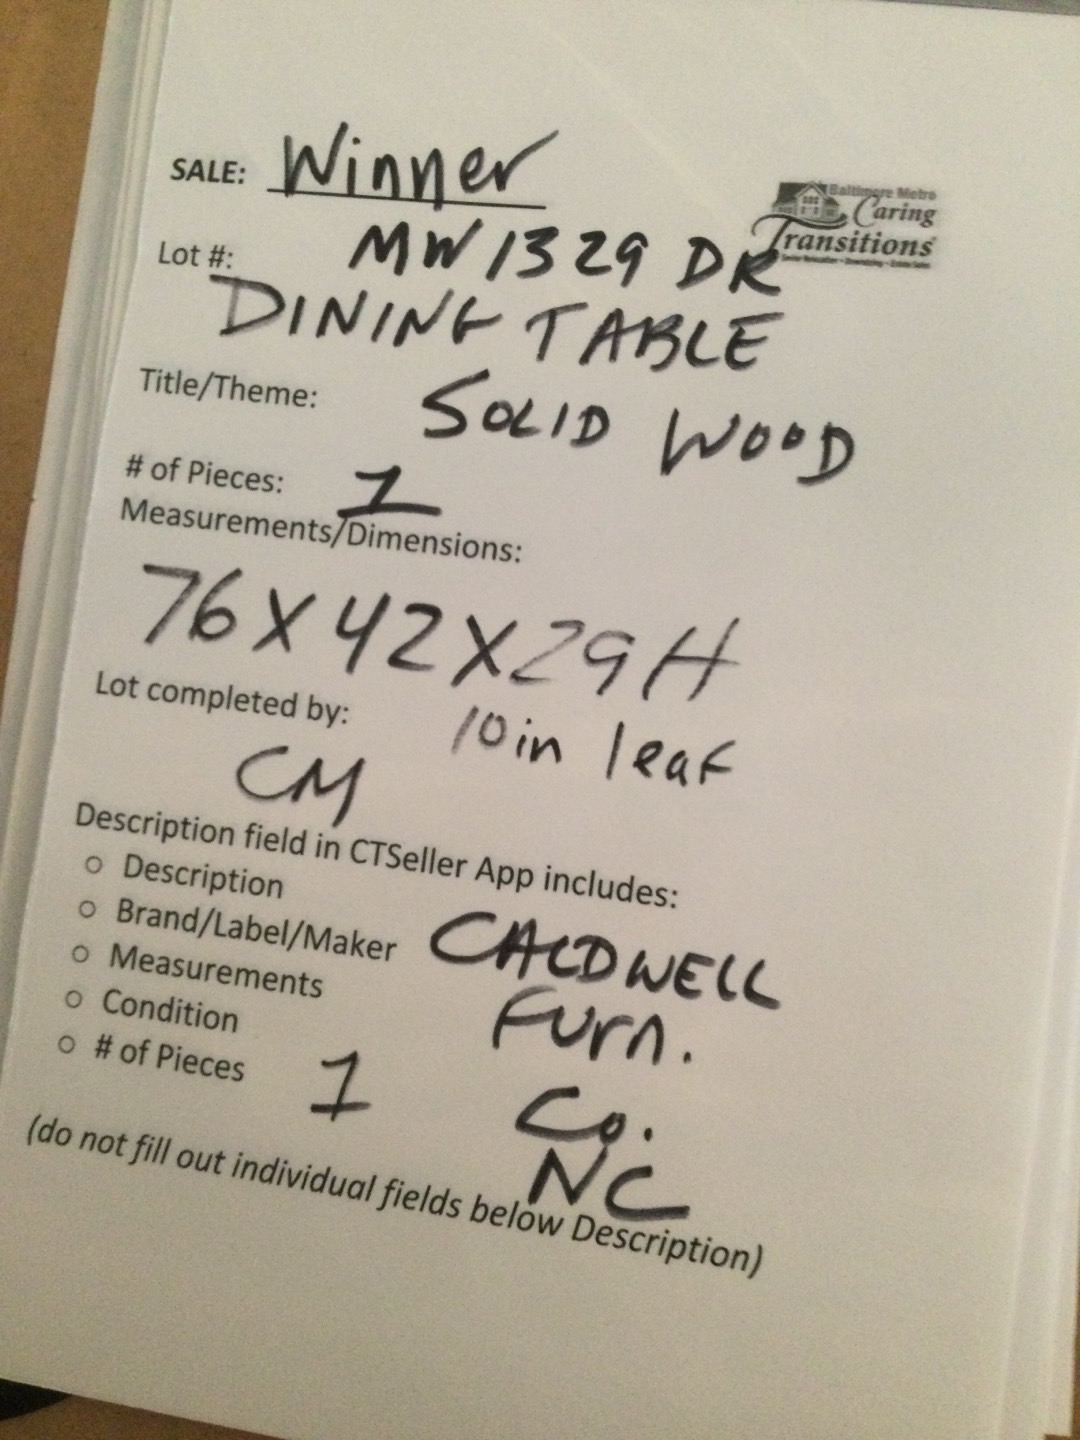 SALE: Winner
Baltimore Metro
Caring
Transitions
Lot #: MW 1329 DR
DINING TABLE
Title/Theme: SOLID WOOD
# of Pieces: 1
Measurements/Dimensions:
76 X 42 X 29 H
Lot completed by: 10 in leaf
CM
Description field in CTSeller App includes:
○ Description
○ Brand/Label/Maker CALDWELL
○ Measurements Furn.
○ Condition
○ # of Pieces 1 Co.
NC
(do not fill out individual fields below Description)